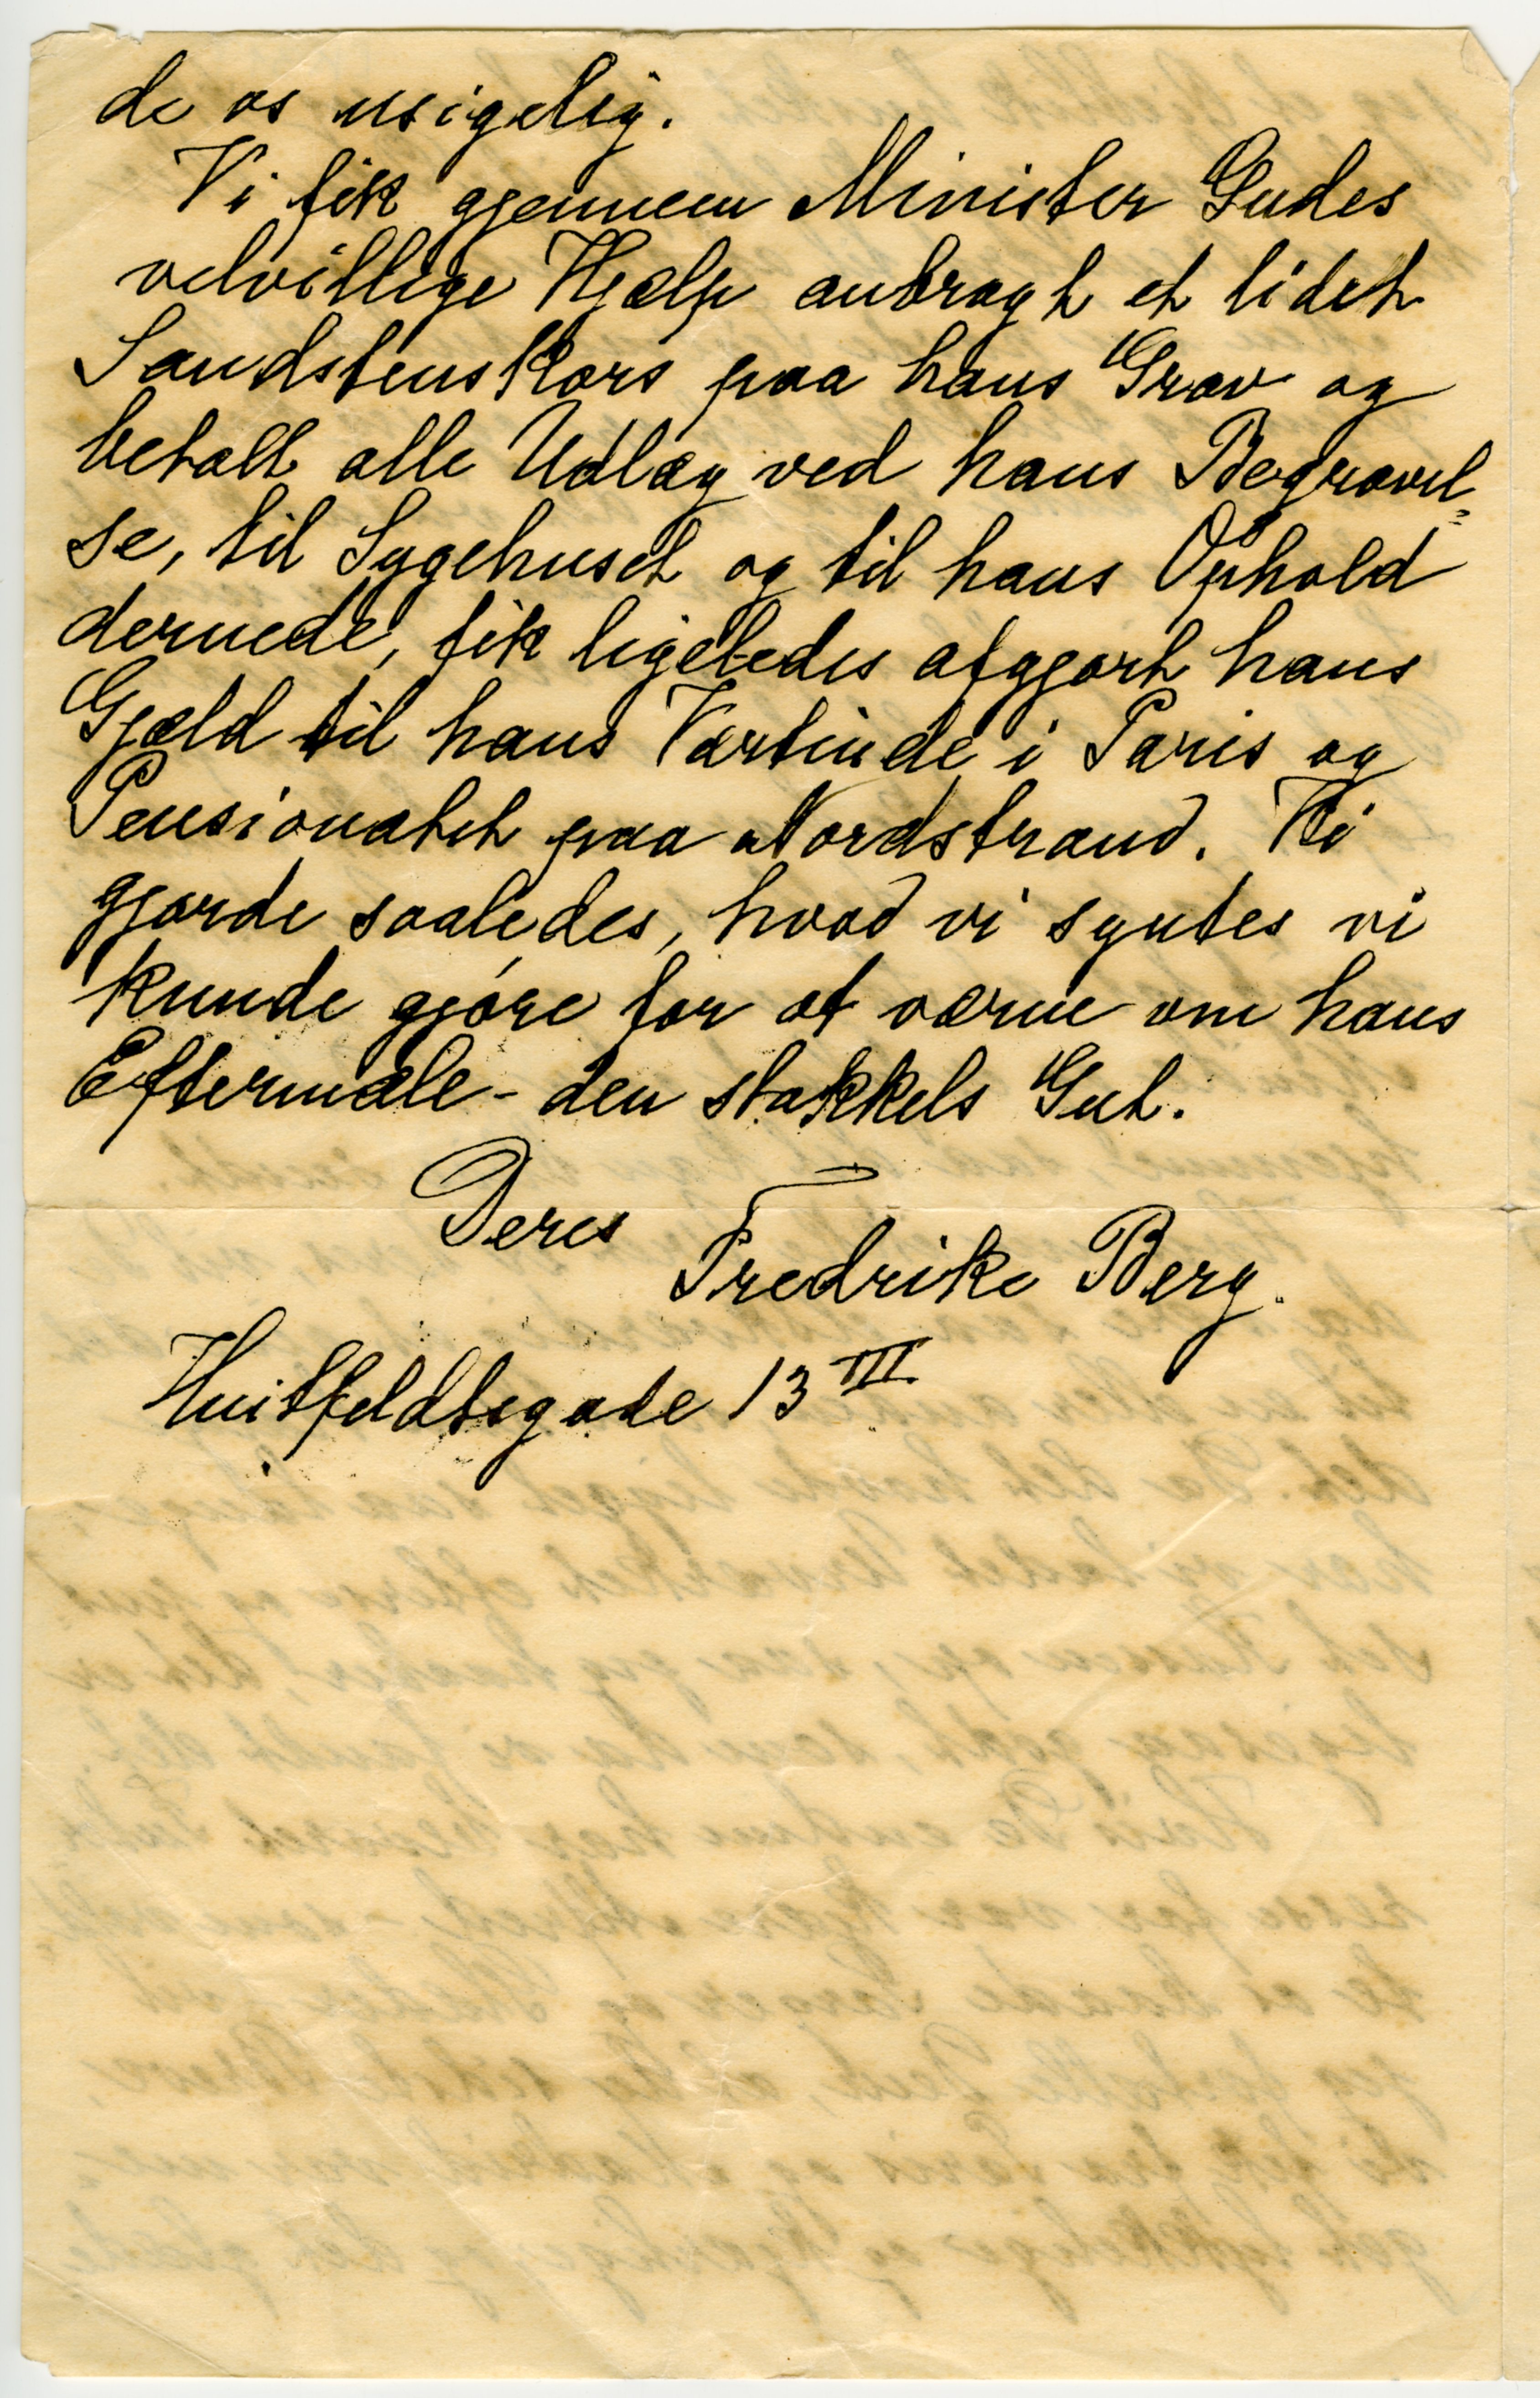 de os usigelig.
Vi fik gjennem Minister Gudes
velvillige Hjælp anbragt et lidet
Sandstenskors paa hans Grav og
betalt alle Udlæg ved hans Begravel-
se, til Sygehuset og til hans Ophold
dernede, fik ligeledes afgjort hans
Gjæld til hans Værtinde i Paris og
Pensionatet paa Nordstrand. Vi
gjorde saaledes, hvad vi syntes vi
kunde gjöre for at værne om hans
Eftermæle - den stakkels Gut.
Deres
Fredrike Berg.
Huitfeldtsgade 13 III